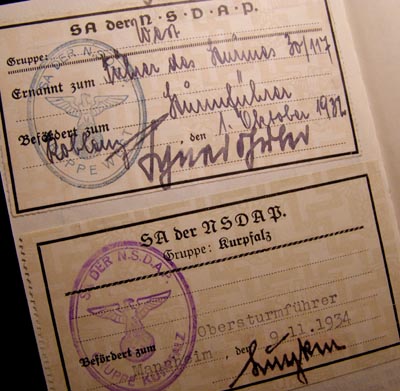 SA der N·S·D·A·P.
Gruppe: West
Ernannt zum Führer des Sturmes 30/117
Sturmführer
Befördert zum
Koblenz den 1. Oktober 1932
SA DER N.S.D.A.P.
GRUPPE WEST
SA der NSDAP.
Gruppe: Kurpfalz
Obersturmführer
Befördert zum
Mannheim den 9.11.1934
SA DER N.S.D.A.P.
GRUPPE KURPFALZ